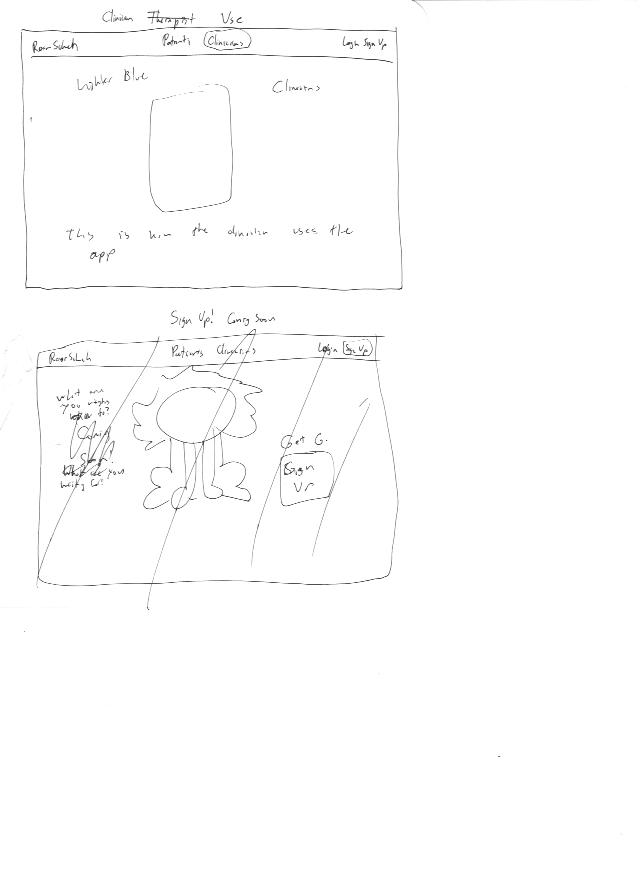 Clinician Therapist Use
RoarSchach Patients Clinicians Login Sign Up
Lighter Blue
Clinicians
This is how the clinician uses the
app
Sign Up! Coming Soon
RoarSchach Patients Clinicians Login Sign Up
What are
you
to?
Coming
Soon!
What are you
waiting for?
Get
Sign
Up